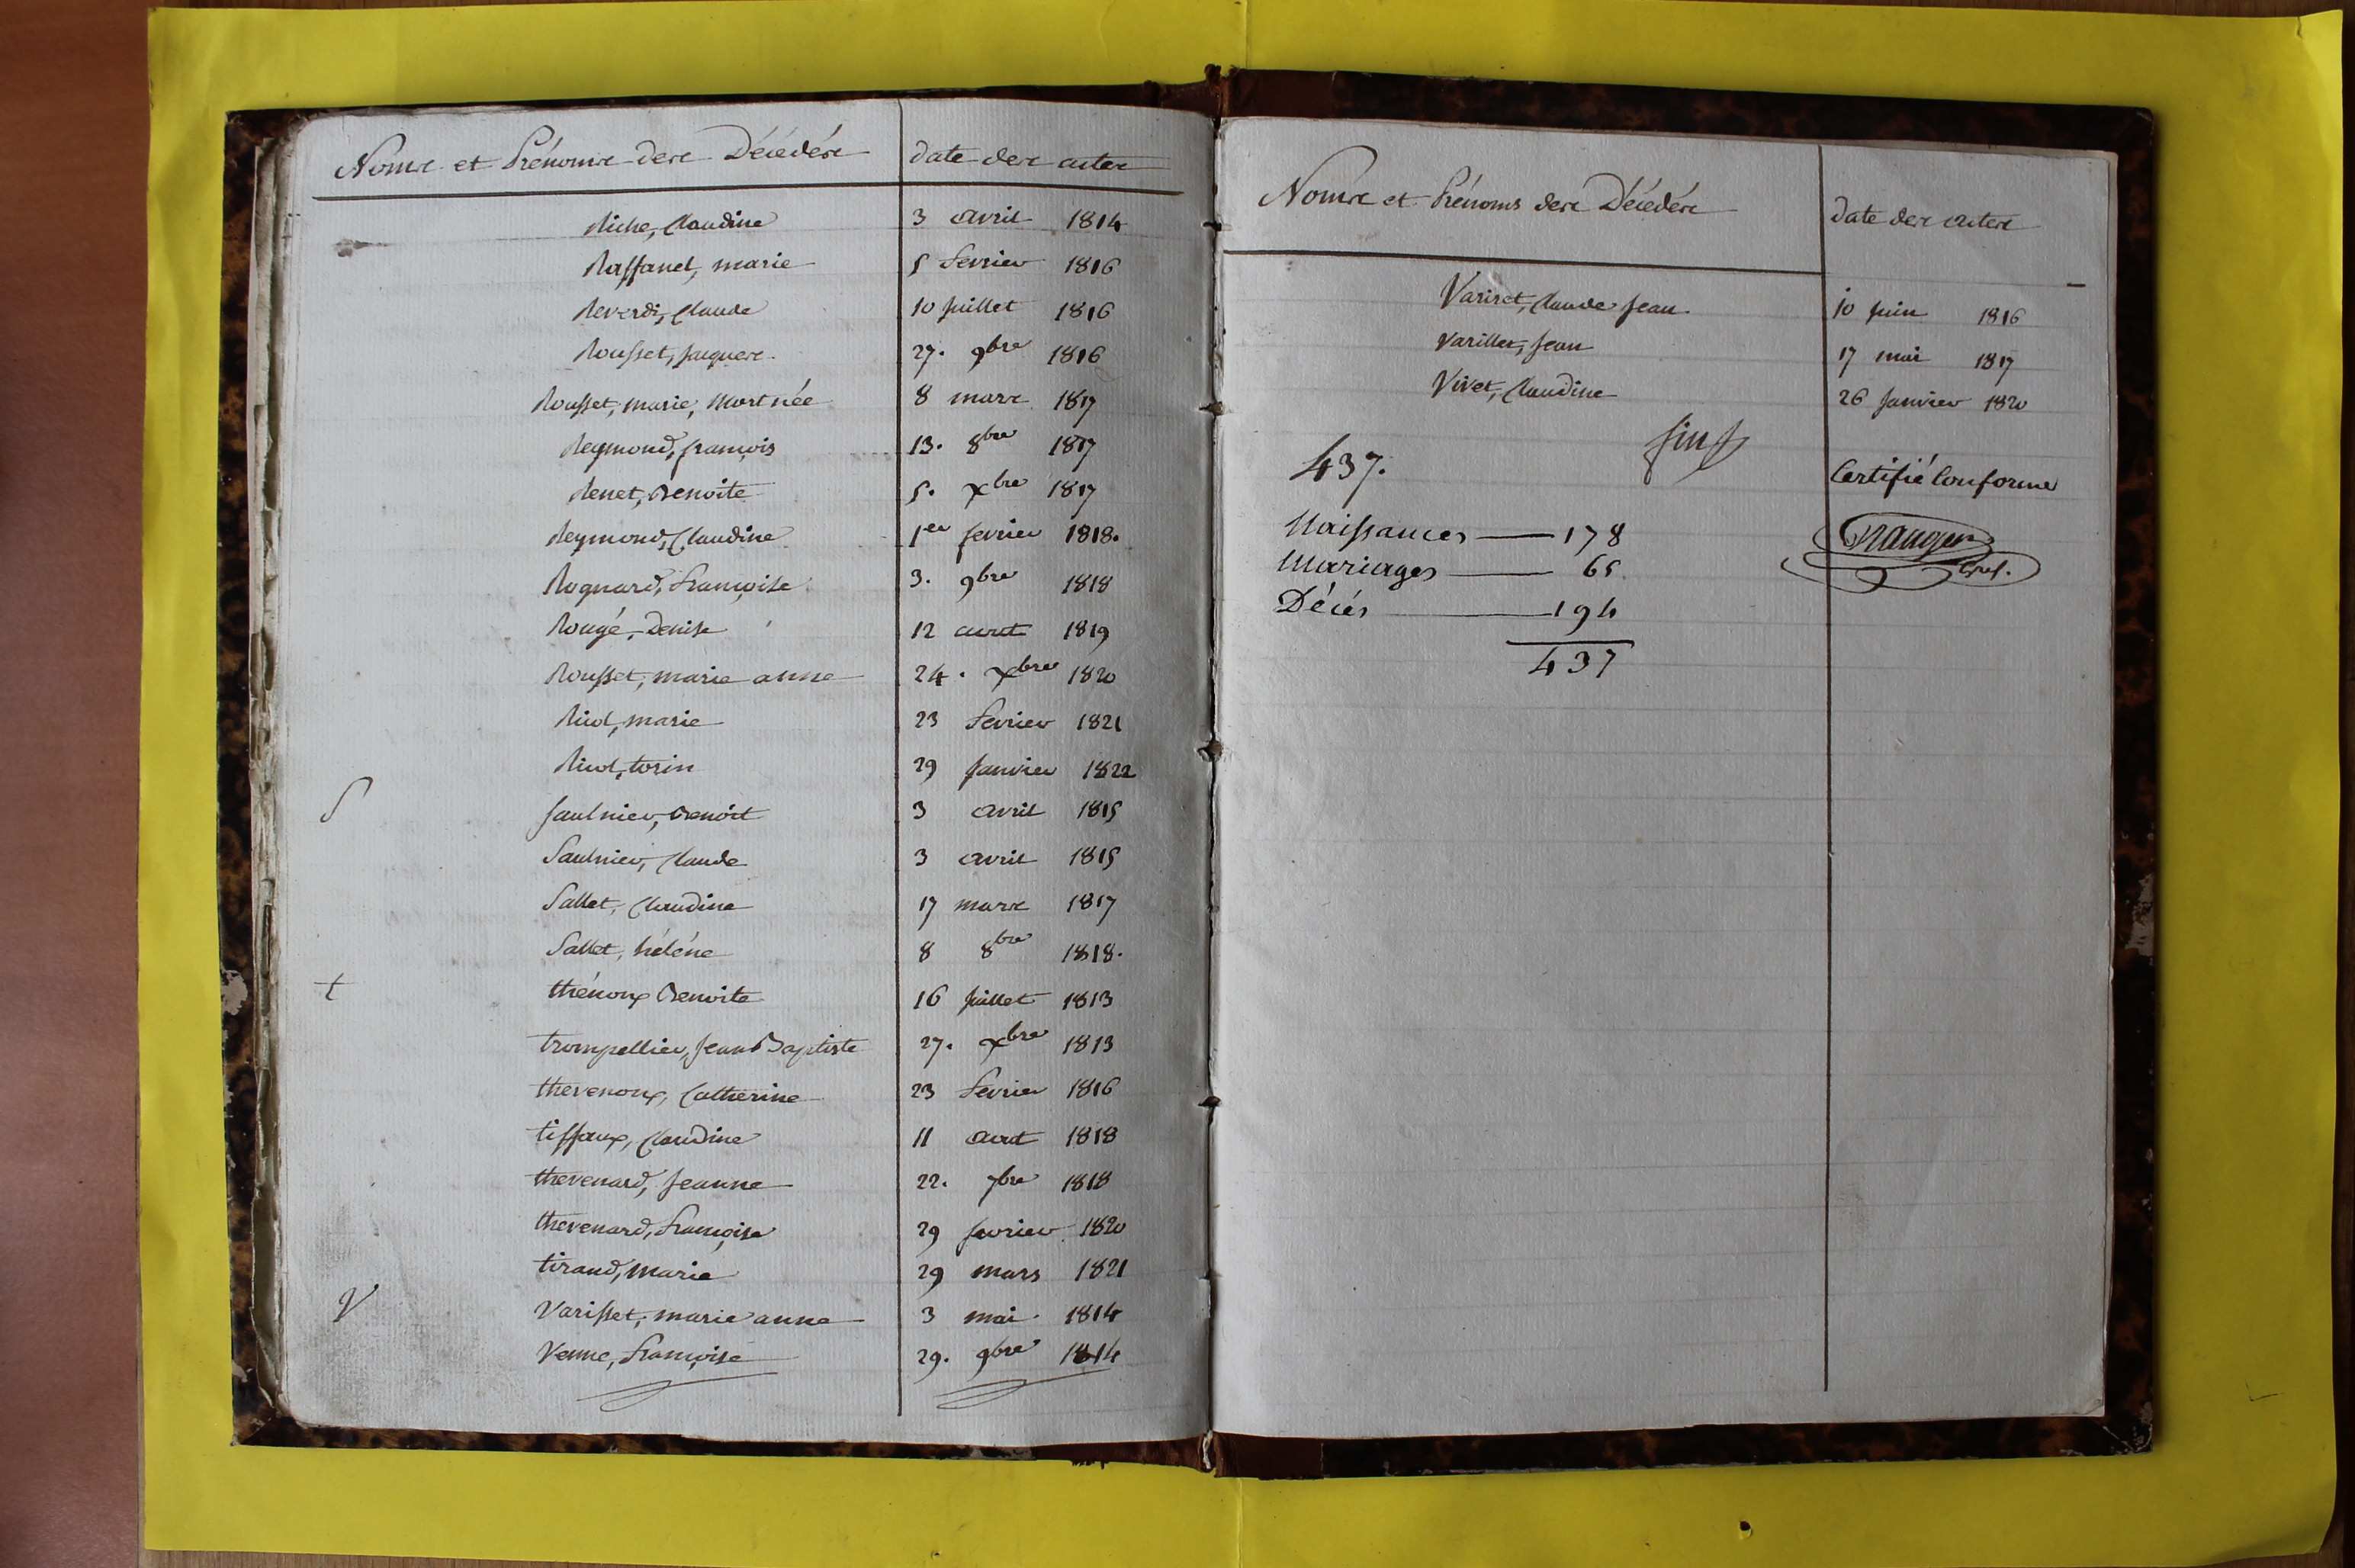 Noms et Prénoms des Décédés date des actes
Riche, Claudine 3 avril 1814
Raffanel, marie 5 fevrier 1816
Reverdi, Claude 10 juillet 1816
Rousset, jaques 27. 9bre 1816
Rousset, marie, Mort née 8 mars 1817
Reymond, françois 13. 8bre 1817
Renet, Benoite 5. Xbre 1817
Reymond, Claudine 1er fevrier 1818.
Rognard, Françoise 3. 9bre 1818
Rougé, Denise 12 aout 1819
Rousset, marie anne 24. Xbre 1820
Riol, marie 23 fevrier 1821
29 janvier 1822
S Saulnier, Benoit 3 avril 1815
Saulnier, Claude 3 avril 1815
Sallet, Claudine 17 mars 1817
Sallet, héléne 8 8bre 1818.
t thénoux Benoite 16 juillet 1813
trompellier, jean Baptiste 27. Xbre 1813
thevenoux, Catherine 23 fevrier 1816
tiffaux, Claudine 11 aout 1818
thevenard, jeanne 22. 7bre 1818
thevenard, Françoise 29 fevrier 1820
tiraud, Marie 29 mars 1821
V Varisset, marie anne 3 mai 1814
Venne, Françoise 29. 9bre 1814
Noms et Prénoms des Décédés date des actes
Variset, Claude jean 10 juin 1816
Varillet, jean 17 mai 1817
Vivet, Claudine 26 janvier 1820
fin
437. Certifié Conforme
Naissances 178
Mariages 65
Décés 194
437